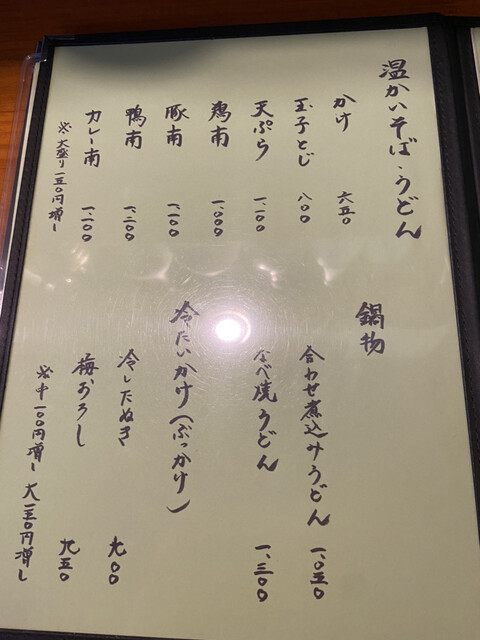 温かいそば・うどん
かけ 六五〇
玉子とじ 八〇〇
天ぷら 一、一〇〇
鶏南 一、〇〇〇
豚南 一、一〇〇
鴨南 一、二〇〇
カレー南 一、一〇〇
※大盛り一五〇円増し
鍋物
合わせ煮込みうどん 一、〇五〇
なべ焼うどん 一、三〇〇
冷たいかけ(ぶっかけ)
冷したぬき 九〇〇
梅おろし 九五〇
※中一〇〇円増し 大二五〇円増し